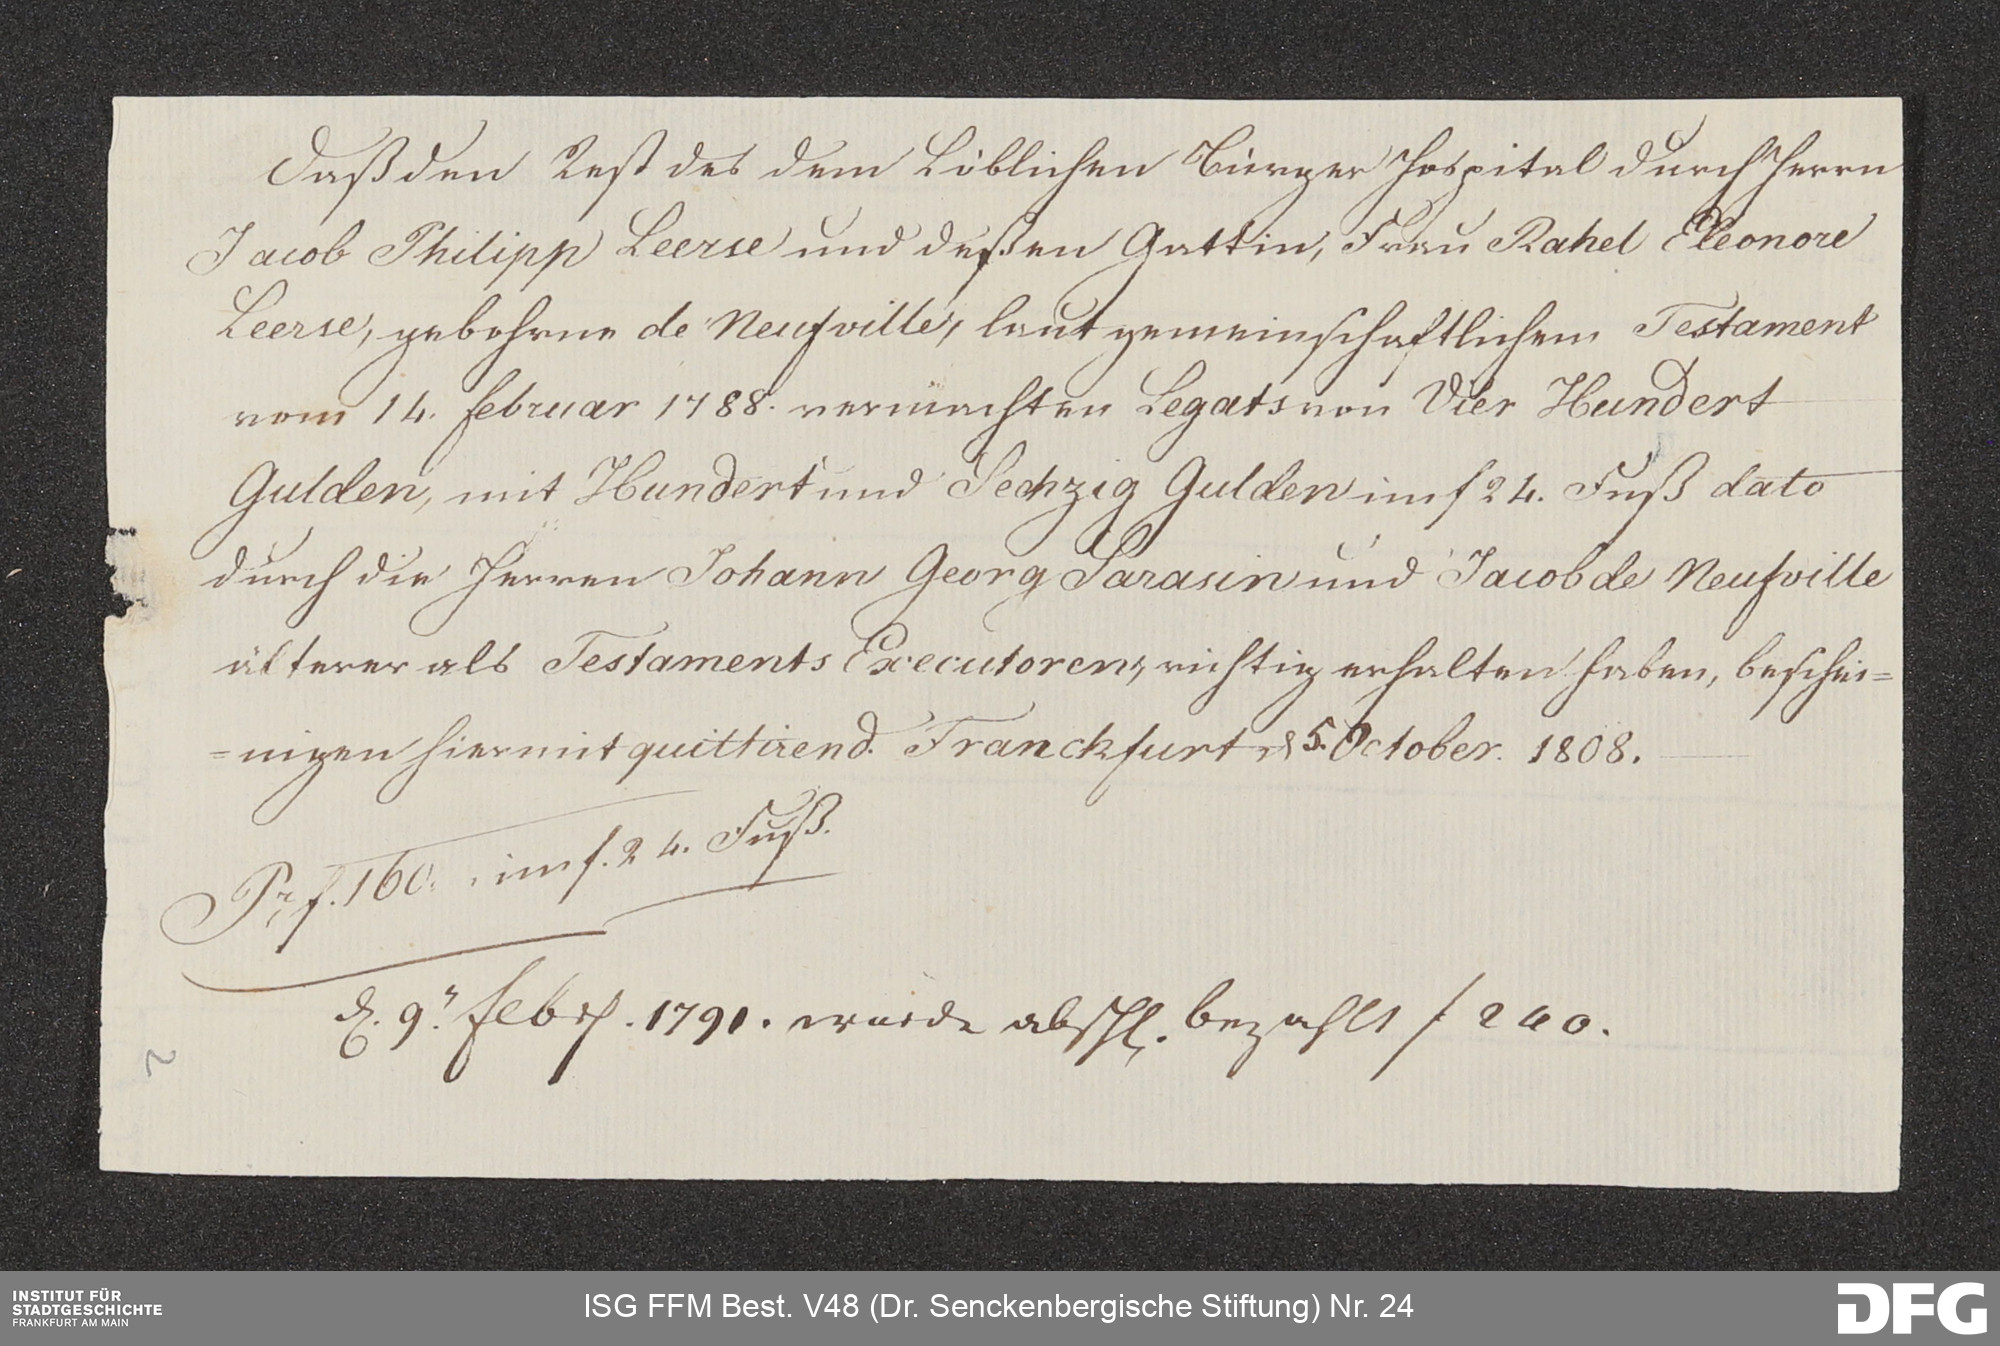 Daß den Rest des dem Löblichen Bürger Hospital durch Herrn
Jacob Philipp Leerse und deßen Gattin, Frau Rahel Eleonore
Leerse, gebohrne de Neufville, laut gemeinschaftlichem Testament
vom 14. Februar 1788. vermachten Legats von Vier Hundert
Gulden, mit Hundert und Sechzig Gulden im f 24. Fuß dato
durch die Herren Johann Georg Sarasin und Jacob de Neufville
älterer als Testaments Executoren, richtig erhalten haben, beschei=
=nigen hiermit quittirend. Franckfurt d 5. October. 1808.
Pr. f. 160. im f. 24. Fuß.
d. 9n. Febr. 1791. wurde abschl. bezahlt f 240.
2
INSTITUT FÜR
STADTGESCHICHTE
FRANKFURT AM MAIN
ISG FFM Best. V48 (Dr. Senckenbergische Stiftung) Nr. 24
DFG